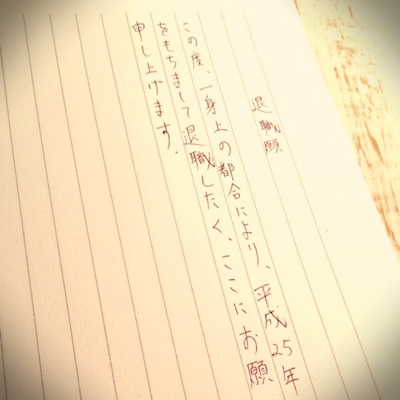 退職願
この度、一身上の都合により、平成25年
をもちまして退職したく、ここにお願
申し上げます．